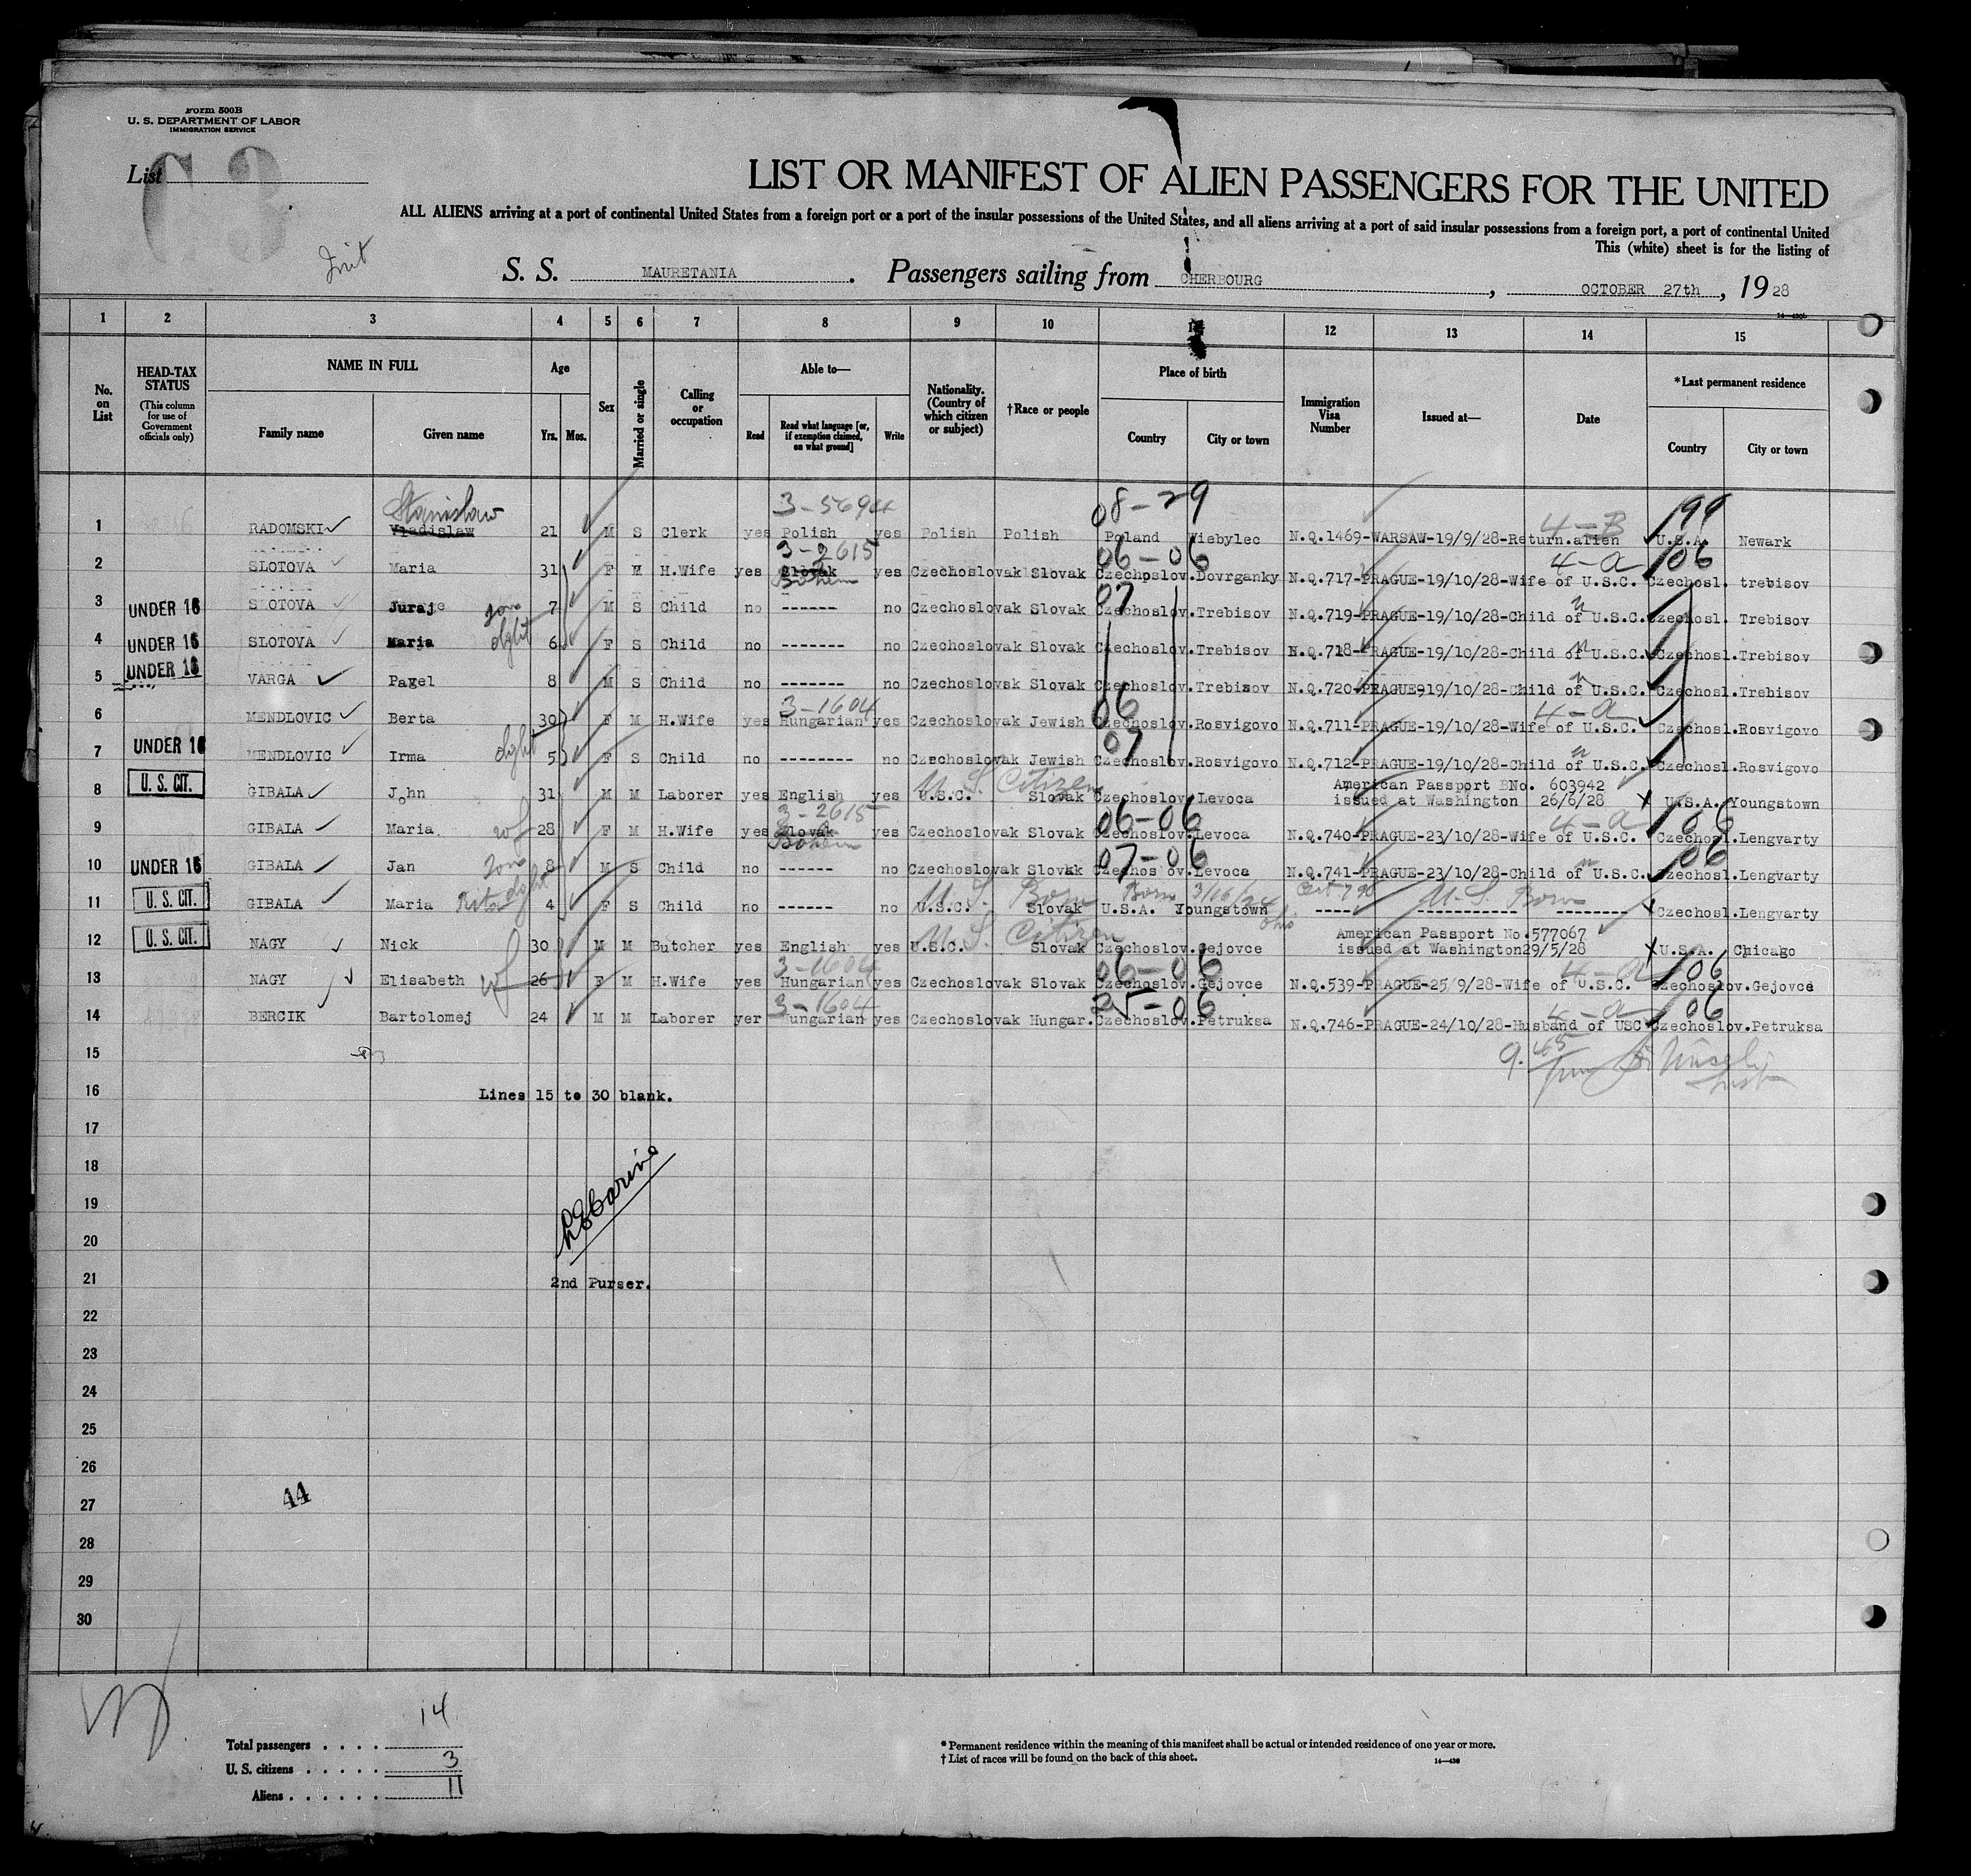 Form 500B
U. S. DEPARTMENT OF LABOR
IMMIGRATION SERVICE
List
63
LIST OR MANIFEST OF ALIEN PASSENGERS FOR THE UNITED
ALL ALIENS arriving at a port of continental United States from a foreign port or a port of the insular possessions of the United States, and all aliens arriving at a port of said insular possessions from a foreign port, a port of continental United
This (white) sheet is for the listing of
S. S. MAURETANIA. Passengers sailing from CHERBOURG, OCTOBER 27th, 1928
1 2 3 4 5 6 7 8 9 10 12 13 14 15
No. on List
HEAD-TAX STATUS
(This column for use of Government officials only)
NAME IN FULL
Family name
Given name
Age
Yrs. Mos.
Sex
Married or single
Calling or occupation
Able to—
Read
Read what language [or, if exemption claimed, on what ground]
Write
Nationality. (Country of which citizen or subject)
†Race or people
Place of birth
Country
City or town
Immigration Visa Number
Issued at—
Date
*Last permanent residence
Country
City or town
Stanislaw 3-5694 08-29 4-B 99
1 RADOMSKI Vladislaw 21 M S Clerk yes Polish yes Polish Polish Poland Wiebylec N.Q.1469-WARSAW-19/9/28-Return.alien U.S.A. Newark
3-2615 06-06 4-a 06
2 SLOTOVA Maria 31 F M H.Wife yes Slovak yes Czechoslovak Slovak Czechoslov.Dovrganky N.Q.717-PRAGUE-19/10/28-Wife of U.S.C. Czechosl. trebisov
Bohem
07
3 UNDER 16 SLOTOVA Juraje son 7 M S Child no ------ no Czechoslovak Slovak Czechoslov.Trebisov N.Q.719-PRAGUE-19/10/28-Child of U.S.C. Czechosl. Trebisov
4 UNDER 16 SLOTOVA Maria dght 6 F S Child no ------- no Czechoslovak Slovak Czechoslov.Trebisov N.Q.718-PRAGUE-19/10/28-Child of U.S.C. Czechosl.Trebisov
5 UNDER 16 VARGA Pavel 8 M S Child no ------- no Czechoslovsk Slovak Czechoslov.Trebisov N.Q.720-PRAGUE919/10/28-Child of U.S.C. Czechosl.Trebisov
3-1604 06 4-a
6 MENDLOVIC Berta 30 F M H.Wife yes Hungarian yes Czechoslovak Jewish Czechoslov.Rosvigovo N.Q.711-PRAGUE-19/10/28-Wife of U.S.C. Czechosl.Rosvigovo
07
7 UNDER 16 MENDLOVIC Irma dght 5 F S Child no -------- no Czechoslovak Jewish Czechoslov.Rosvigovo N.Q.712-PRAGUE-19/10/28-Child of U.S.C. Czechosl.Rosvigovo
U. S. Citizen
8 U. S. CIT. GIBALA John 31 M M Laborer yes English yes U.S.C. Slovak Czechoslov.Levoca American Passport BNo. 603942
issued at Washington 26/6/28 U.S.A. Youngstown
3-2615 06-06 4-a 06
9 GIBALA Maria wf 28 F M H.Wife yes Slovak yes Czechoslovak Slovak Czechoslov.Levoca N.Q.740-PRAGUE-23/10/28-Wife of U.S.C. Czechosl.Lengvarty
Bohem
07-06 06
10 UNDER 16 GIBALA Jan son 8 M S Child no ------ no Czechoslovak Slovak Czechoslov.Levoca N.Q.741-PRAGUE-23/10/28-Child of U.S.C. Czechosl.Lengvarty
U. S. Born Born 3/16/24 Ohio U. S. Born
11 U. S. CIT. GIBALA Maria Rita dght 4 F S Child no ------ no U.S.C. Slovak U.S.A. Youngstown ---- ------------ -------- Czechosl.Lengvarty
U. S. Citizen
12 U. S. CIT. NAGY Nick 30 M M Butcher yes English yes U.S.C. Slovak Czechoslov.Gejovce American Passport No.577067
issued at Washington29/5/28 U.S.A. Chicago
3-1604 06-06 4-a 06
13 NAGY Elisabeth wf 26 F M H.Wife yes Hungarian yes Czechoslovak Slovak Czechoslov.Gejovce N.Q.539-PRAGUE-25/9/28-Wife of U.S.C. Czechoslov.Gejovce
3-1604 25-06 4-a 06
14 BERCIK Bartolomej 24 M M Laborer yer Hungarian yes Czechoslovak Hungar.Czechoslov.Petruksa N.Q.746-PRAGUE-24/10/28-Husband of USC Czechoslov.Petruksa
15
16 Lines 15 to 30 blank.
17
18
19
20
21 2nd Purser.
22
23
24
25
26
27 44
28
29
30
Total passengers . . . . 14
U. S. citizens . . . . . 3
Aliens . . . . . . 11
* Permanent residence within the meaning of this manifest shall be actual or intended residence of one year or more.
† List of races will be found on the back of this sheet.